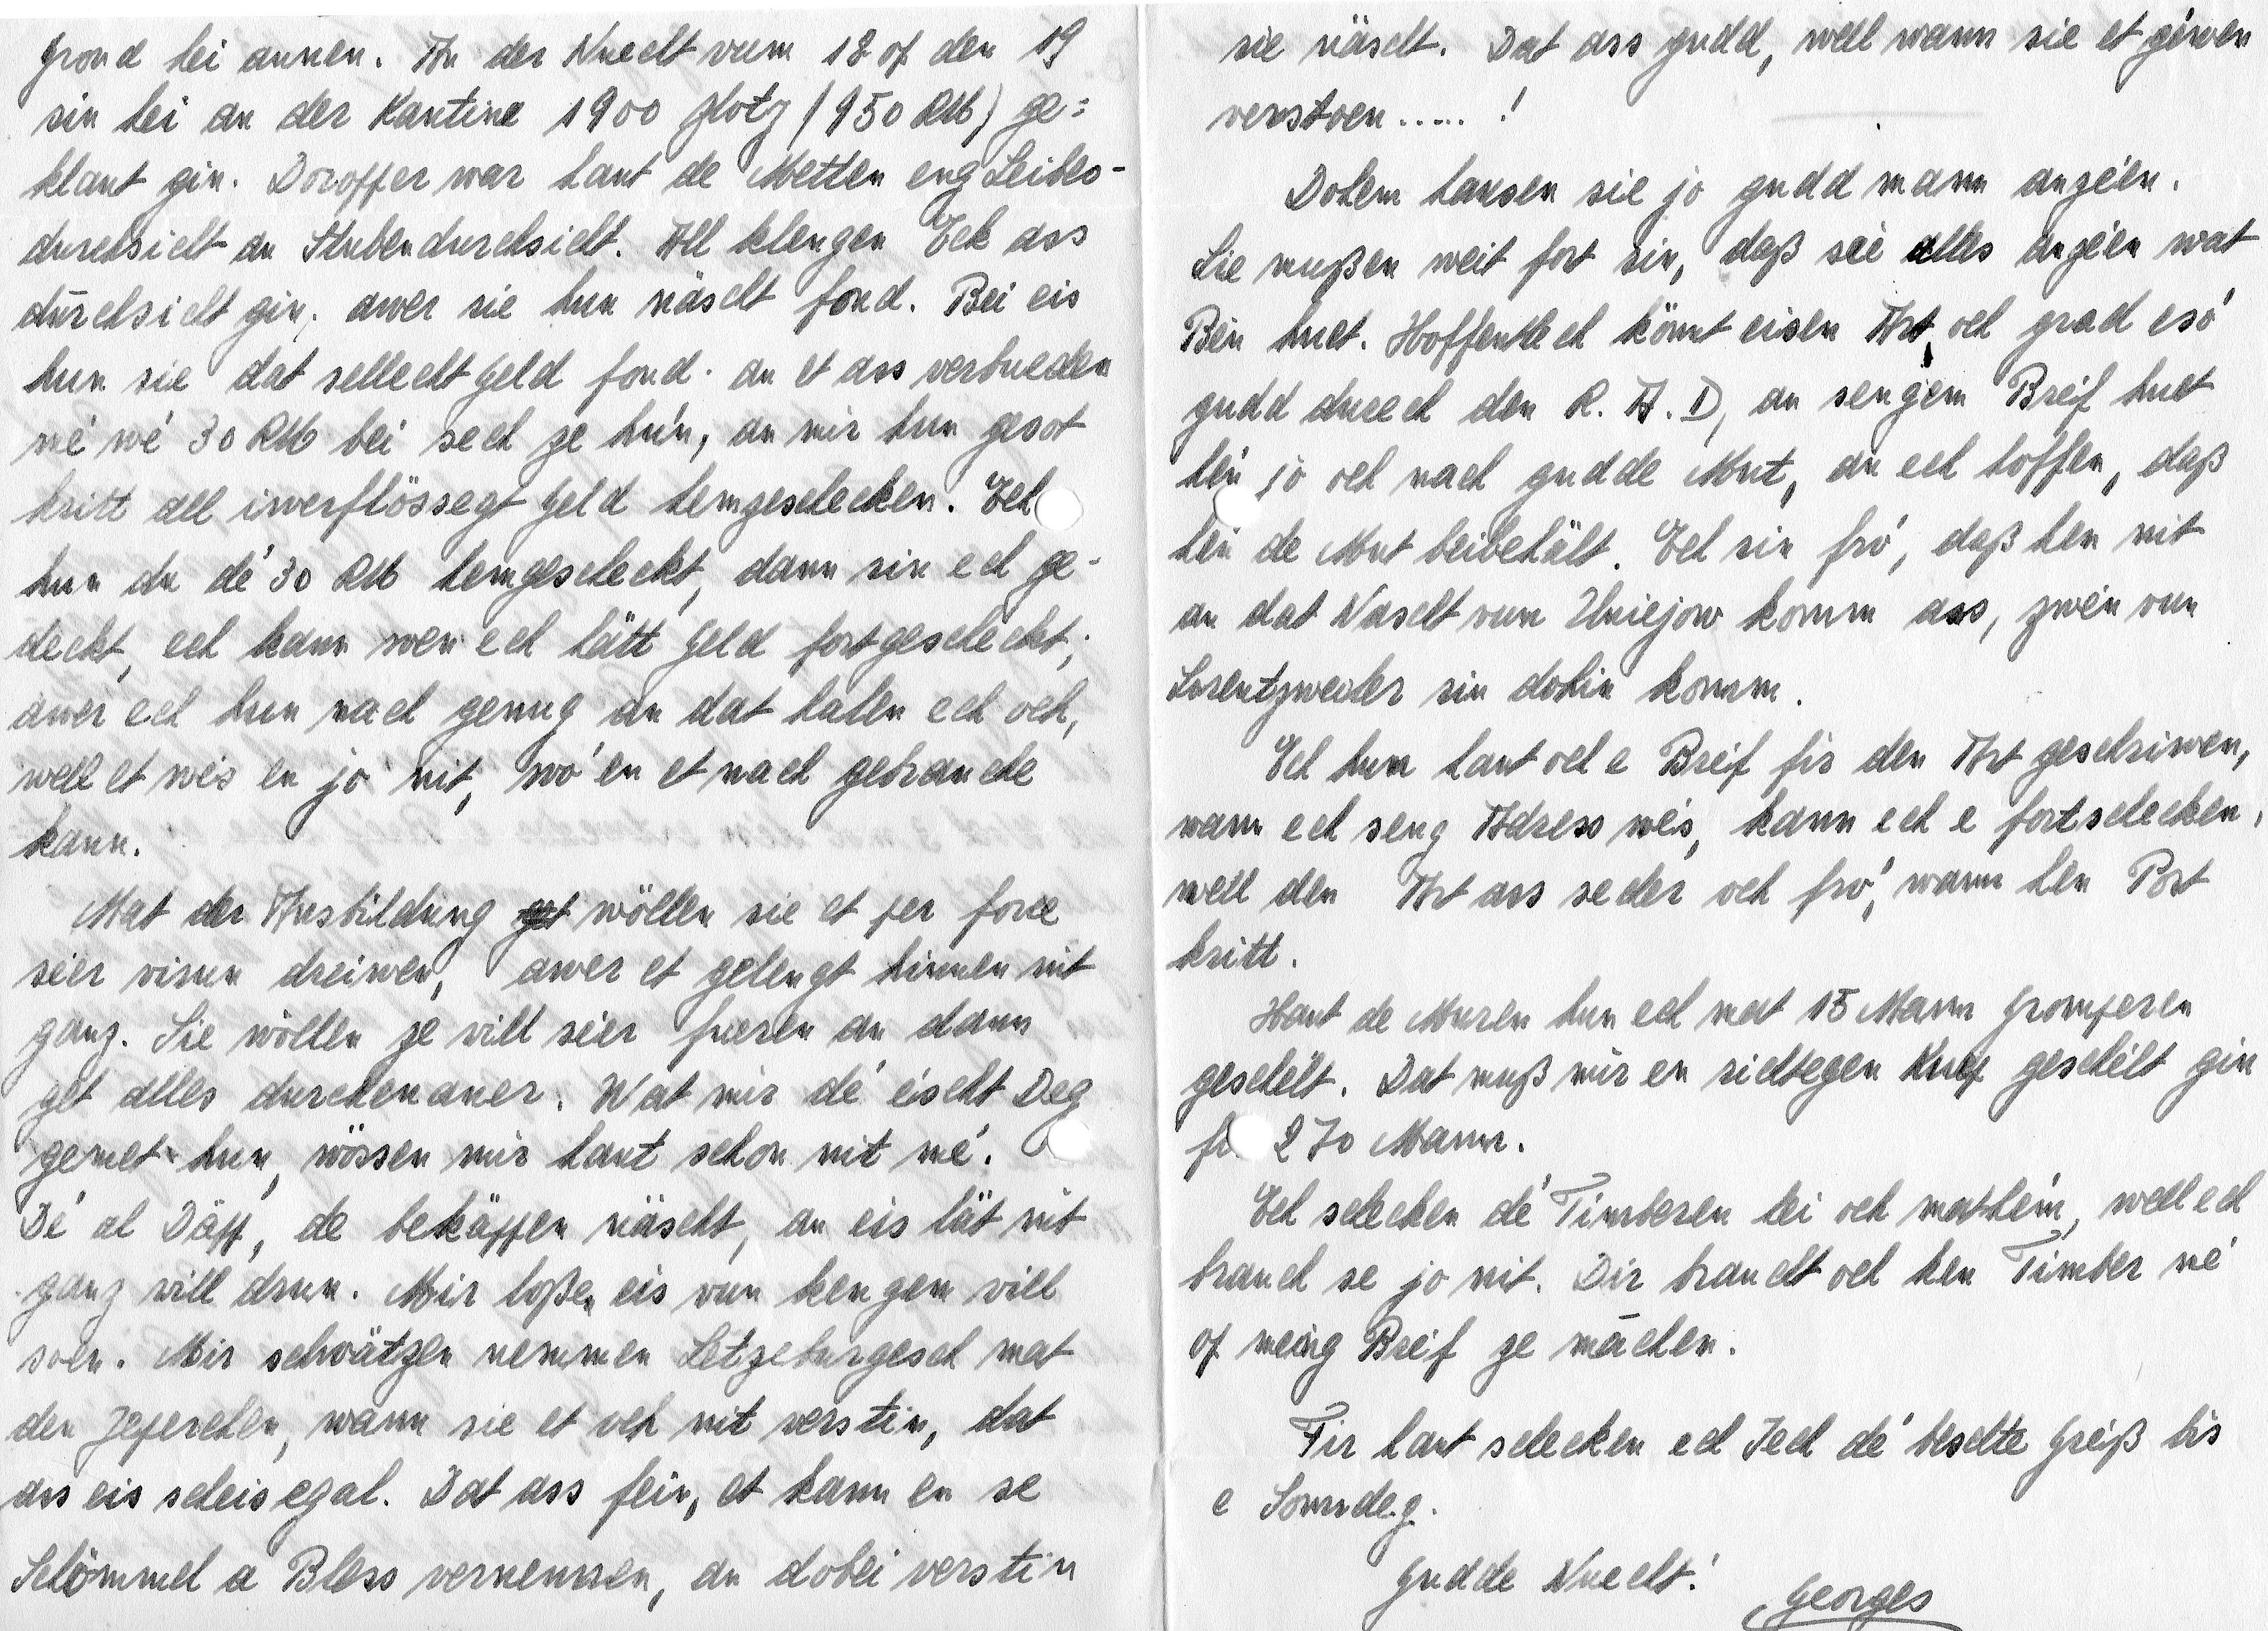 grond hei annen. An der Nuecht vum 18 op den 19
sin hei an der Kantine 1900 Zloty (950 RM) ge=
klaut gin. Doroffer war haut de Metten eng Leibes-
durchsicht an Stubendurchsicht. All klengen Eck ass
dŭrchsicht gin, awer sie hun näscht fond. Bei eis
hun sie dat sellecht Geld fond. an et ass verbueden
mé wé 30 RM bei sech ze hun, an mir hun gesot
kritt all iwerflössegt Geld hemgeschecken. Ech
hun du dé 30 RM hemgescheckt, dann sin ech ge-
deckt, ech kann soen ech hätt Geld fortgescheckt,
awer ech hun nach genug an dat halen ech och,
well et wés en jo nit, wó en et nach gebrauche
kann.
Mat der Ausbildung wöllen sie et per force
séier virun dreiwen, awer et gelengt hinnen nit
ganz. Sie wöllen ze vill séier fueren an dann
get alles durchenaner. Wat mir dé éischt Deg
gemet hun, wössen mir haut schon nit mé.
Dé al Däpp, de bekäppen näscht, an eis lät nit
ganz vill drun. Mir loßen eis vun kengem vill
soen. Mir schwätzen nemmen Letzeburgesch mat
den Zepercher, wann sie et och nit verstin, dat
ass eis scheisegal. Dat ass fein, et kann en se
Schömmel a Bless vernennen, an dobei verstin
sie näscht. Dat ass gudd, well wann sie et géwen
verstoen..... !
Dohem hausen sie jo gudd mann angéen.
Sie mußen weit fort sin, daß sie alles angéen wat
Bén huet. Hoffentlech könnt eisen Art och grad esó
gudd durech den R.A.D, an sengem Bréif huet
hén jo och nach gudde Mut, an ech hoffen, daß
hén de Mut beibehält. Ech sin fró, daß hen nit
an dat Nascht vun Uniejow komm ass, zwén vun
Lorentzweiler sin dohin komm.
Ech hun haut och e Bréif fir den Art geschriwen,
wann ech seng Adress wés, kann ech e fortschecken,
well den Art ass secher och fró, wann hen Post
kritt.
Haut de Muren hun ech mat 15 Mann Gromperen
geschélt. Dat muß mir en richtegen Kuep geschélt gin
270 Mann.
Ech schecken dé Timberen hei och mat hém, well ech
brauch se jo nit. Dir braucht och ken Timber mé
op meng Bréif ze mächen.
Fir haut schecken ech Iech dé beschte Gréiß bis
e Sonndeg.
Gudde Nuecht!
Georges